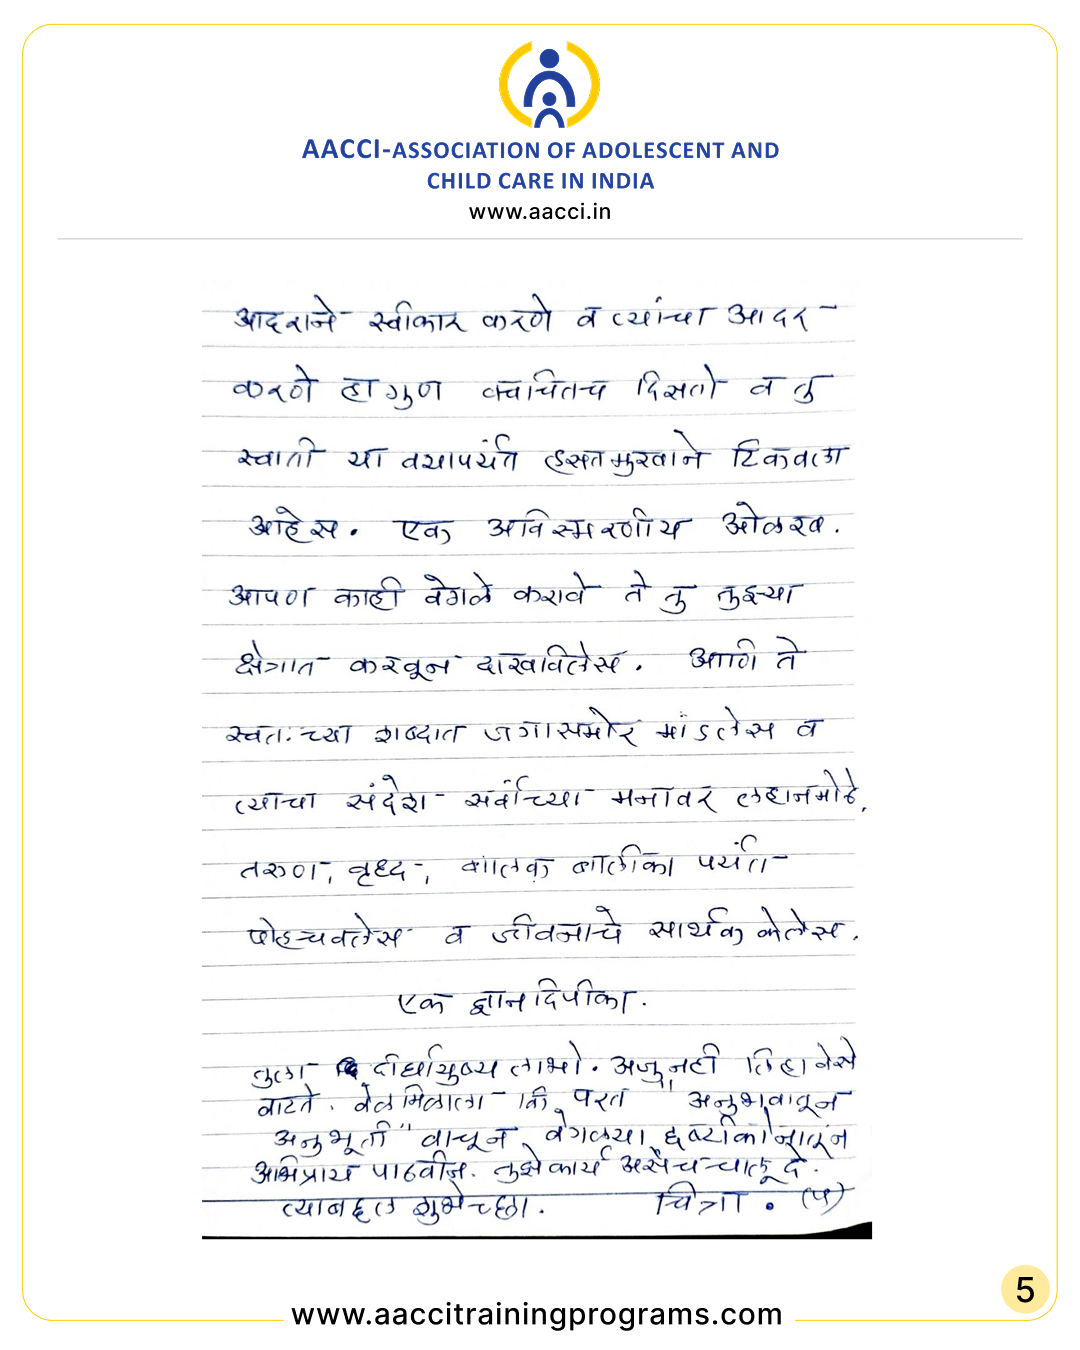 AACCI-ASSOCIATION OF ADOLESCENT AND
CHILD CARE IN INDIA
www.aacci.in
आदराने स्वीकार करणे व त्यांचा आदर
करणे हा गुण क्वचितच दिसतो व तु
स्वाती या वयापर्यंत हसतमुखाने टिकवला
आहेस. एक अविस्मरणीय ओळख.
आपण काही वेगळे करावे ते तु तुझ्या
क्षेत्रात करवून दाखविलेस. आणि ते
स्वतःच्या शब्दात जगासमोर मांडलेस व
त्याचा संदेश सर्वांच्या मनावर लहानमोठे,
तरुण, वृध्द, बालक बालीका पर्यंत
पोहचवलेस व जीवनाचे सार्थक केलेस.
एक ज्ञानदिपीका.
तुला दीर्घायुष्य लाभो. अजुनही लिहावेसे
वाटते. वेळ मिळाला कि, परत "अनुभवातून
अनुभूती" वाचून वेगळ्या दृष्टीकोनातून
अभिप्राय पाठवीन. तुझे कार्य असेच चालू दे.
त्याबद्दल शुभेच्छा. चित्रा. (५)
5
www.aaccitrainingprograms.com